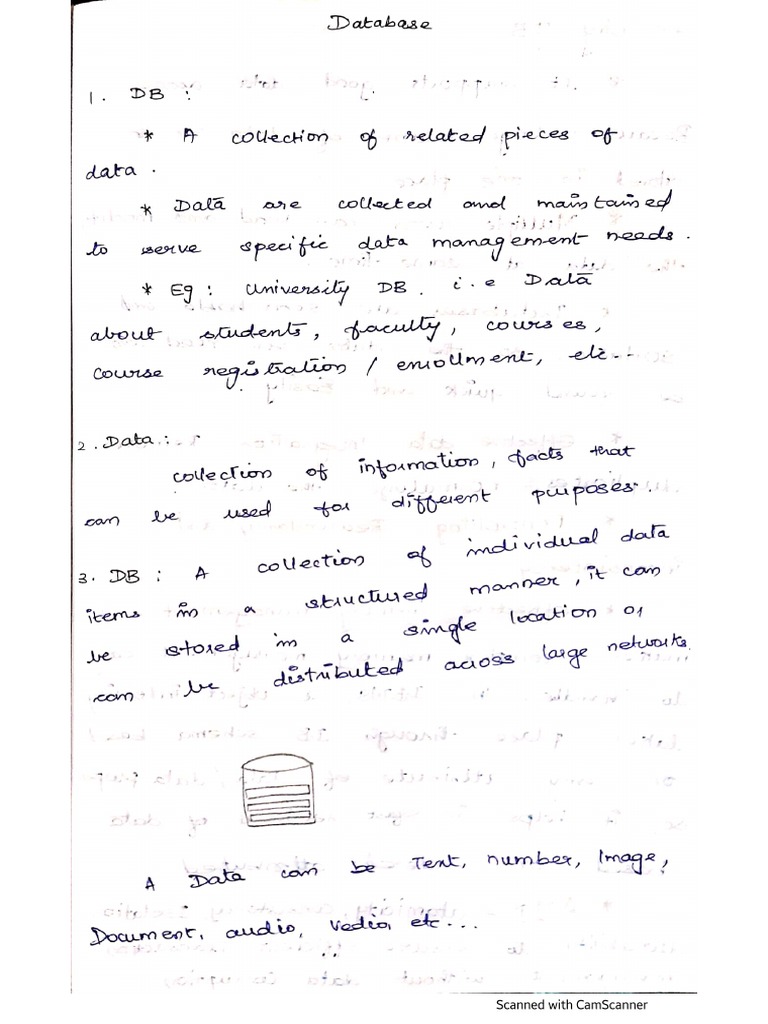 Database
1. DB :
* A collection of related pieces of
data.
* Data are collected and maintained
to serve specific data management needs.
* Eg : University DB. i.e Data
about students, faculty, courses,
course registration / enrollment, etc..
2. Data :
collection of information, facts that
can be used for different purposes.
3. DB : A collection of individual data
items in a structured manner, it can
be stored in a single location or
can be distributed across large networks.
A Data can be Text, number, Image,
Document, audio, Vedio, etc...
Scanned with CamScanner